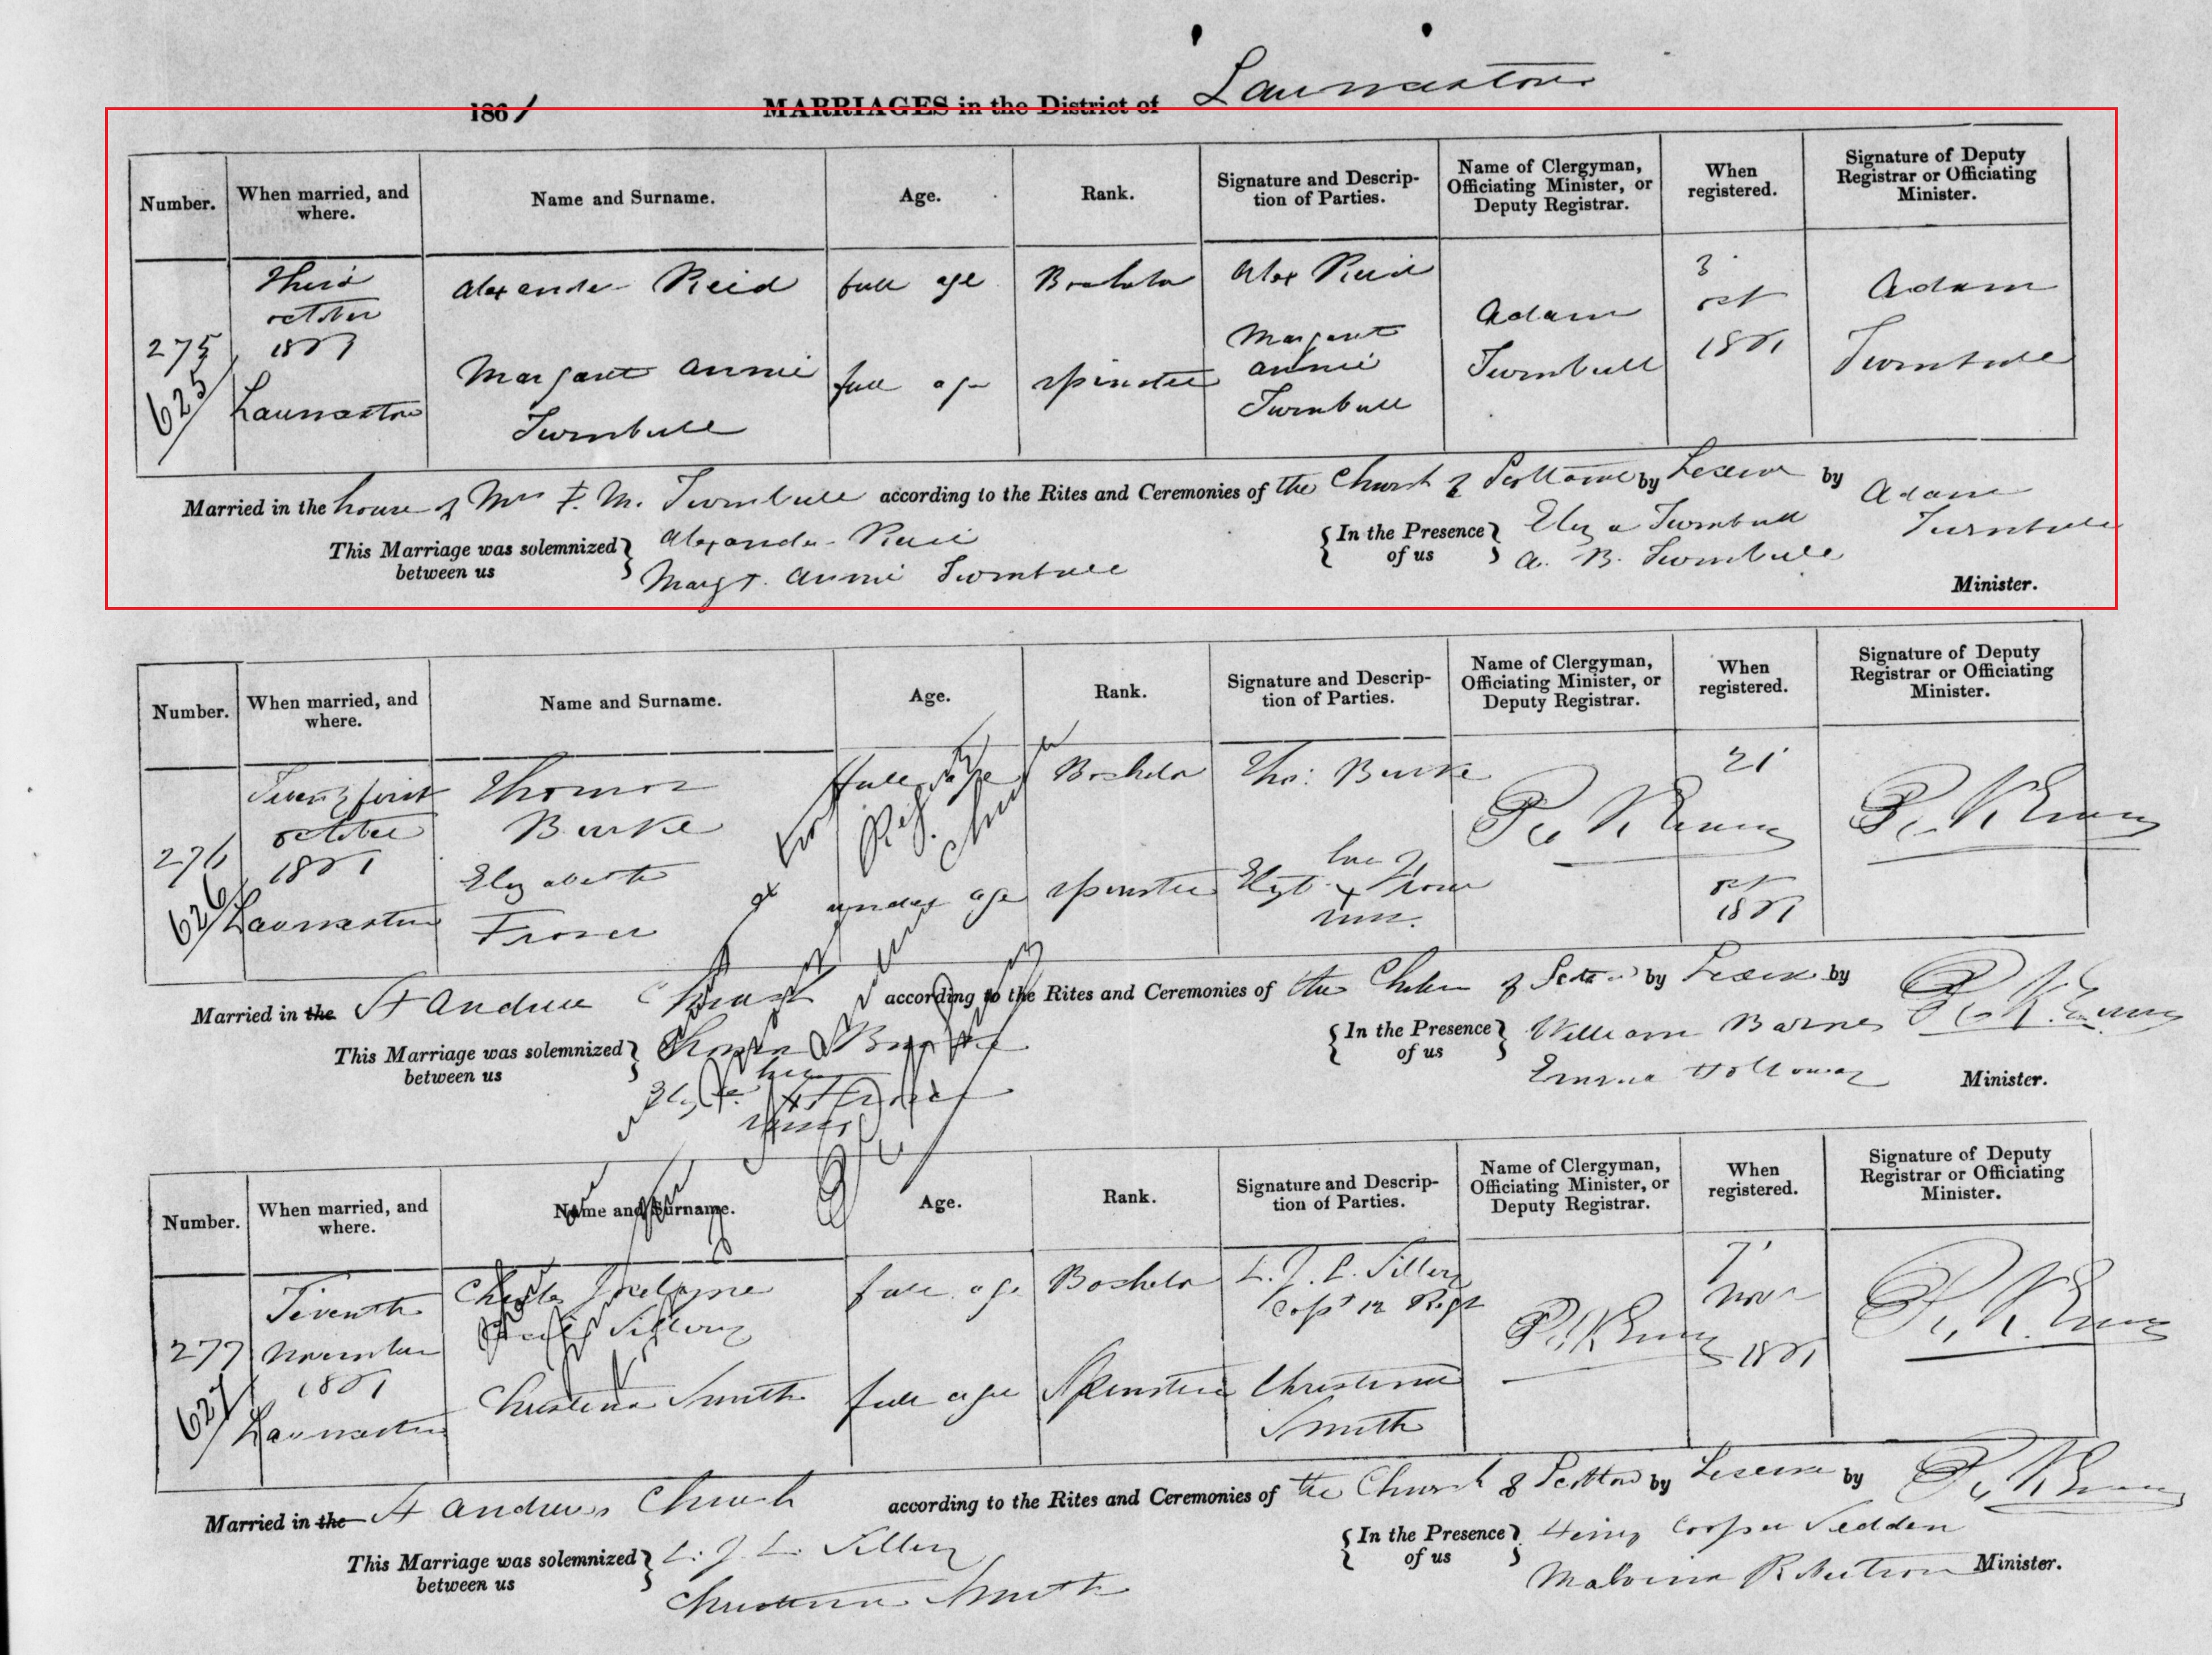 1861 MARRIAGES in the District of Launceston
Number. When married, and where. Name and Surname. Age. Rank. Signature and Description of Parties. Name of Clergyman, Officiating Minister, or Deputy Registrar. When registered. Signature of Deputy Registrar or Officiating Minister.
275
625
Third
october
1861
Launceston
Alexander Reid full age Bachelor Alex Reid
Margaret Annie
Turnbull
full age spinster
Margaret
Annie
Turnbull
Adam
Turnbull
3
oct
1861
Adam
Turnbull
Married in the house of Mrs F. M. Turnbull according to the Rites and Ceremonies of the Church of Scotland by License by Adam
Turnbull
This Marriage was solemnized between us
Alexander Reid
Margt. Annie Turnbull
In the Presence of us
Eliza Turnbull
A. B. Turnbull
Minister.
Number. When married, and where. Name and Surname. Age. Rank. Signature and Description of Parties. Name of Clergyman, Officiating Minister, or Deputy Registrar. When registered. Signature of Deputy Registrar or Officiating Minister.
276
626
Twenty first
october
1861
Launceston
Thomas
Burke
full age Bachelor Thos: Burke
Elizabeth
under age spinster
21
oct
1861
Married in the St Andrews Church according to the Rites and Ceremonies of the Church of by License by
This Marriage was solemnized between us
Thomas Burke
In the Presence of us
William Barnes
Emma Holloway
Minister.
Number. When married, and where. Name and Surname. Age. Rank. Signature and Description of Parties. Name of Clergyman, Officiating Minister, or Deputy Registrar. When registered. Signature of Deputy Registrar or Officiating Minister.
277
627
Seventh
November
1861
Launceston
Charles
full age Bachelor
Capt 12 Regt
Christina Smith full age Spinster Christina
Smith
7
Novr
1861
Married in the St Andrews Church according to the Rites and Ceremonies of the Church of Scotland by License by
This Marriage was solemnized between us
Christina Smith
In the Presence of us
Henry Cooper Seddon
Malvina Robertson
Minister.